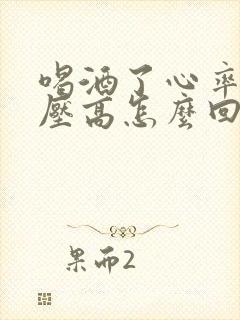 喝酒了心率
壓高怎麼回
果而2